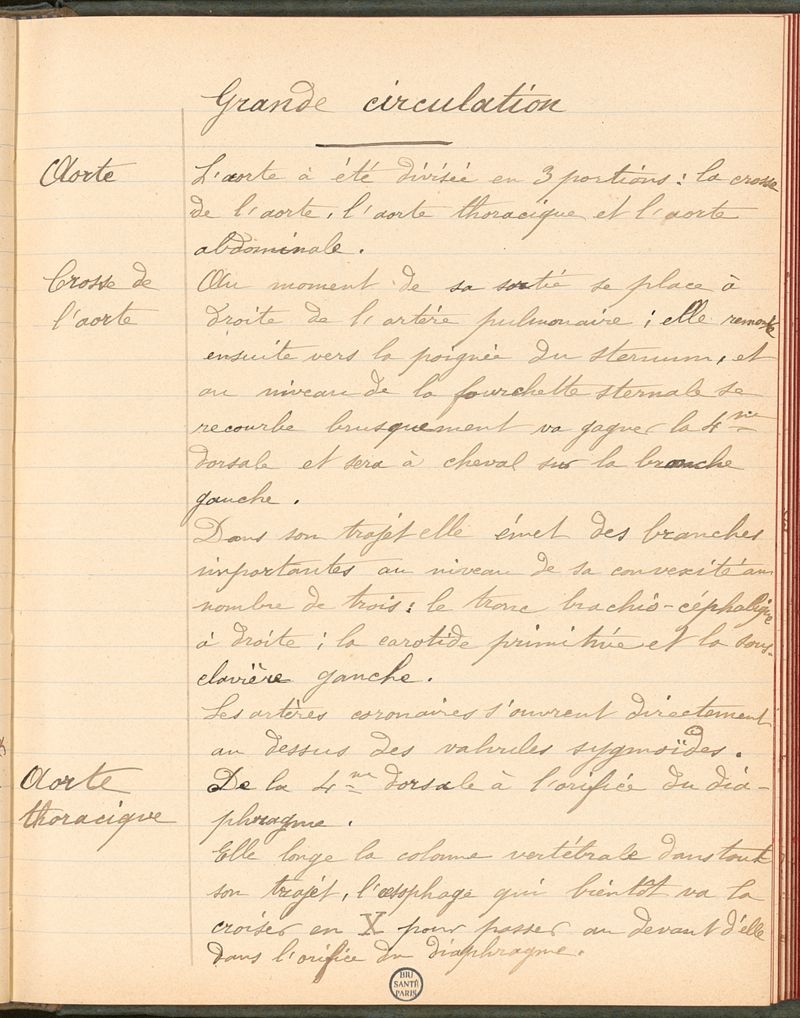 Grande circulation
Aorte
L'aorte à été divisée en 3 portions : la crosse
de l'aorte, l'aorte thoracique et l'aorte
abdominale.
Crosse de
l'aorte
Au moment de sa sortie se place à
droite de l'artère pulmonaire ; elle remonte
ensuite vers la poignée du sternum, et
au niveau de la fourchette sternale se
recourbe brusquement va gagner la 4me
dorsale et sera à cheval sur la bronche
gauche.
Dans son trajet elle émet des branches
importantes au niveau de sa convexité au
nombre de trois : le tronc brachio-céphalique
à droite ; la carotide primitive et la sous-
clavière gauche.
Les artères coronaires s'ouvrent directement
au dessus des valvules sygmoïdes.
Aorte
thoracique
De la 4me dorsale à l'orifice du dia-
phragme.
Elle longe la colonne vertébrale dans tout
son trajet, l'œsophage qui bientôt va la
croiser en X pour passer au devant d'elle
dans l'orifice du diaphragme.
BIU
SANTÉ
PARIS